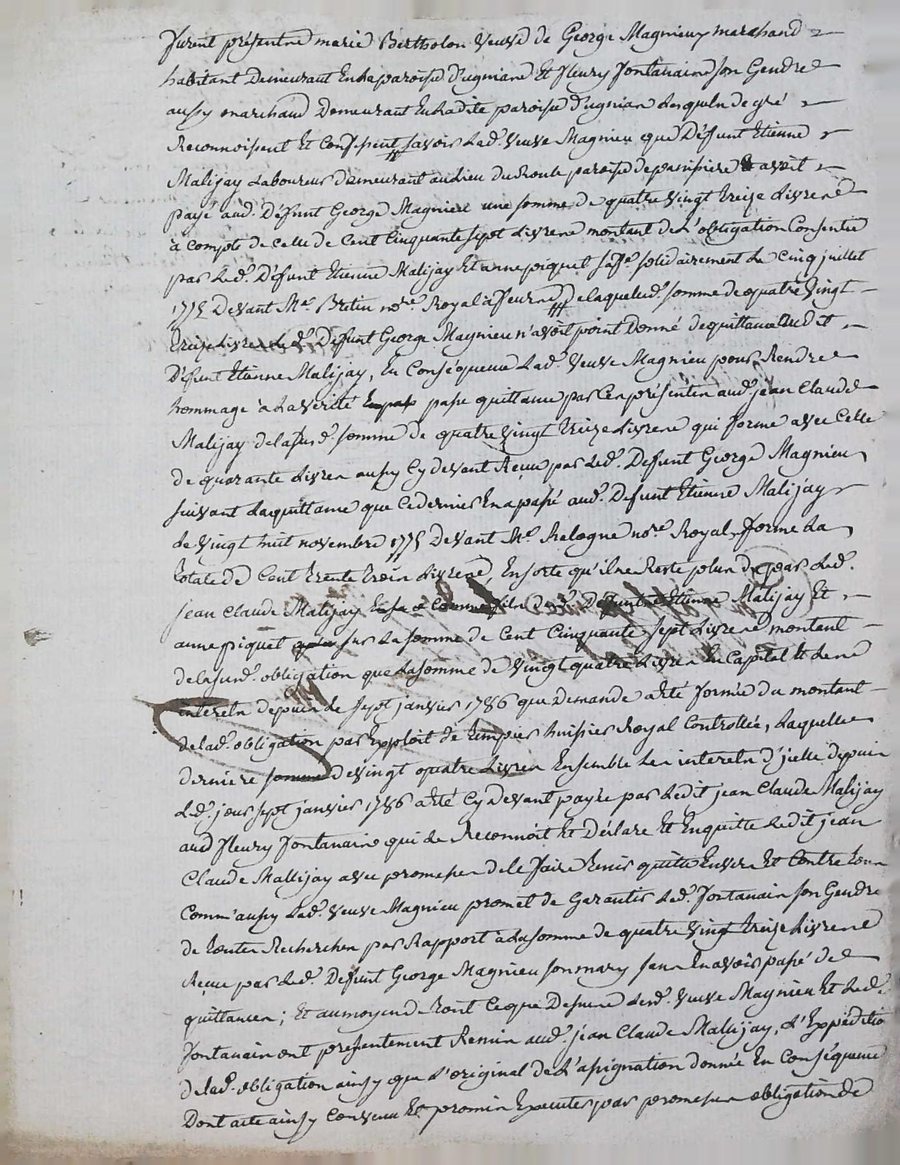 furent présentne marie Bertholon veuve de George Magnieux marchand
habitant Demeurant En la paroise d'ugniane Et fleury fontanaine son Gendre
aussy marchand Demeurant En ladite paroise d'ugnian Lesqueln de gré
Reconnoissent Et Confessent savoir Lad. veuve Magnieu que Défunt Etienne
Malijay Laboureur demeurant au Lieu du Route paroise de panissiere avoit
payé aud. Défunt George Magniere une somme de quatre vingt treize Livrene
a compte de celle de Cent Cinquante sept Livrene montant de L'obligation Consentie
par Led. Défunt Etienne Malijay Et anne piquet sa fe. solidairement Le Cinq juillet
1775 Devant Me. Bretin nore. Royal à feurnd, de laquelled. somme de quatre vingt
treize Livrene Led. Défunt George Magnieu n'avoit point Donné de quittance audit
Défunt Etienne Malijay, En Conséquence Lad. veuve Magnieu pour Rendre
hommage à La vérité passe quittance par Cen présenten aud. jean Claude
Malijay de la susd. somme de quatre vingt treize Livrene qui forme avec Celle
de quarante Livren aussy Cy devant Reçue par Led. Defunt George Magnieu
suivant La quittance que Ce dernier En a passé aud. Defunt Etienne Malijay
Le vingt huit novembre 1775 Devant Me. Relogne nore. Royal, forme La
totale de Cent trente troin Livrene, En sorte qu'il ne Reste plun du par Led.
jean Claude Malijay Defunt Etienne Malijay Et
anne piquet sur La somme de Cent Cinquante sept Livrene montant
de la susd. obligation que La somme de vingt quatre Livren En Capital Et Lene
intereln depuin Le sept janvier 1786 que demande a été formée du montant
de lad. obligation par Exploit de huissier Royal Controllée, Laquelle
derniere somme de vingt quatre Livren Ensemble Len intereln d'jcelle depuin
Led. jour sept janvier 1786 a été Cy devant payée par Ledit jean Claude Malijay
aud fleury fontanaine qui Le Reconnoit Et Déclare Et En quitte Ledit jean
Claude Mallijay avec promessen de le faire tenir quitte Enver Et Contre toun
Comm'aussy Lad. veuve Magnieu promet de Garantir Led. fontanain son Gendre
de touten Recherchen par Rapport à La somme de quatre vingt treize Livrene
Reçue par Led. Defunt George Magnieu son mary sann En avoir passé de
quittancen; Et au moyend. tout Ceque Dessune Lesd. veuve Magnieu Et Led.
fontanain ont presentement Remin aud. jean Claude Mallijay, L'Expéditio
de lad. obligation ainsy que L'original de L'assignation donnée En Conséquence
Dont acte ainsy Convenu Et promin Executer par promessen obligation de